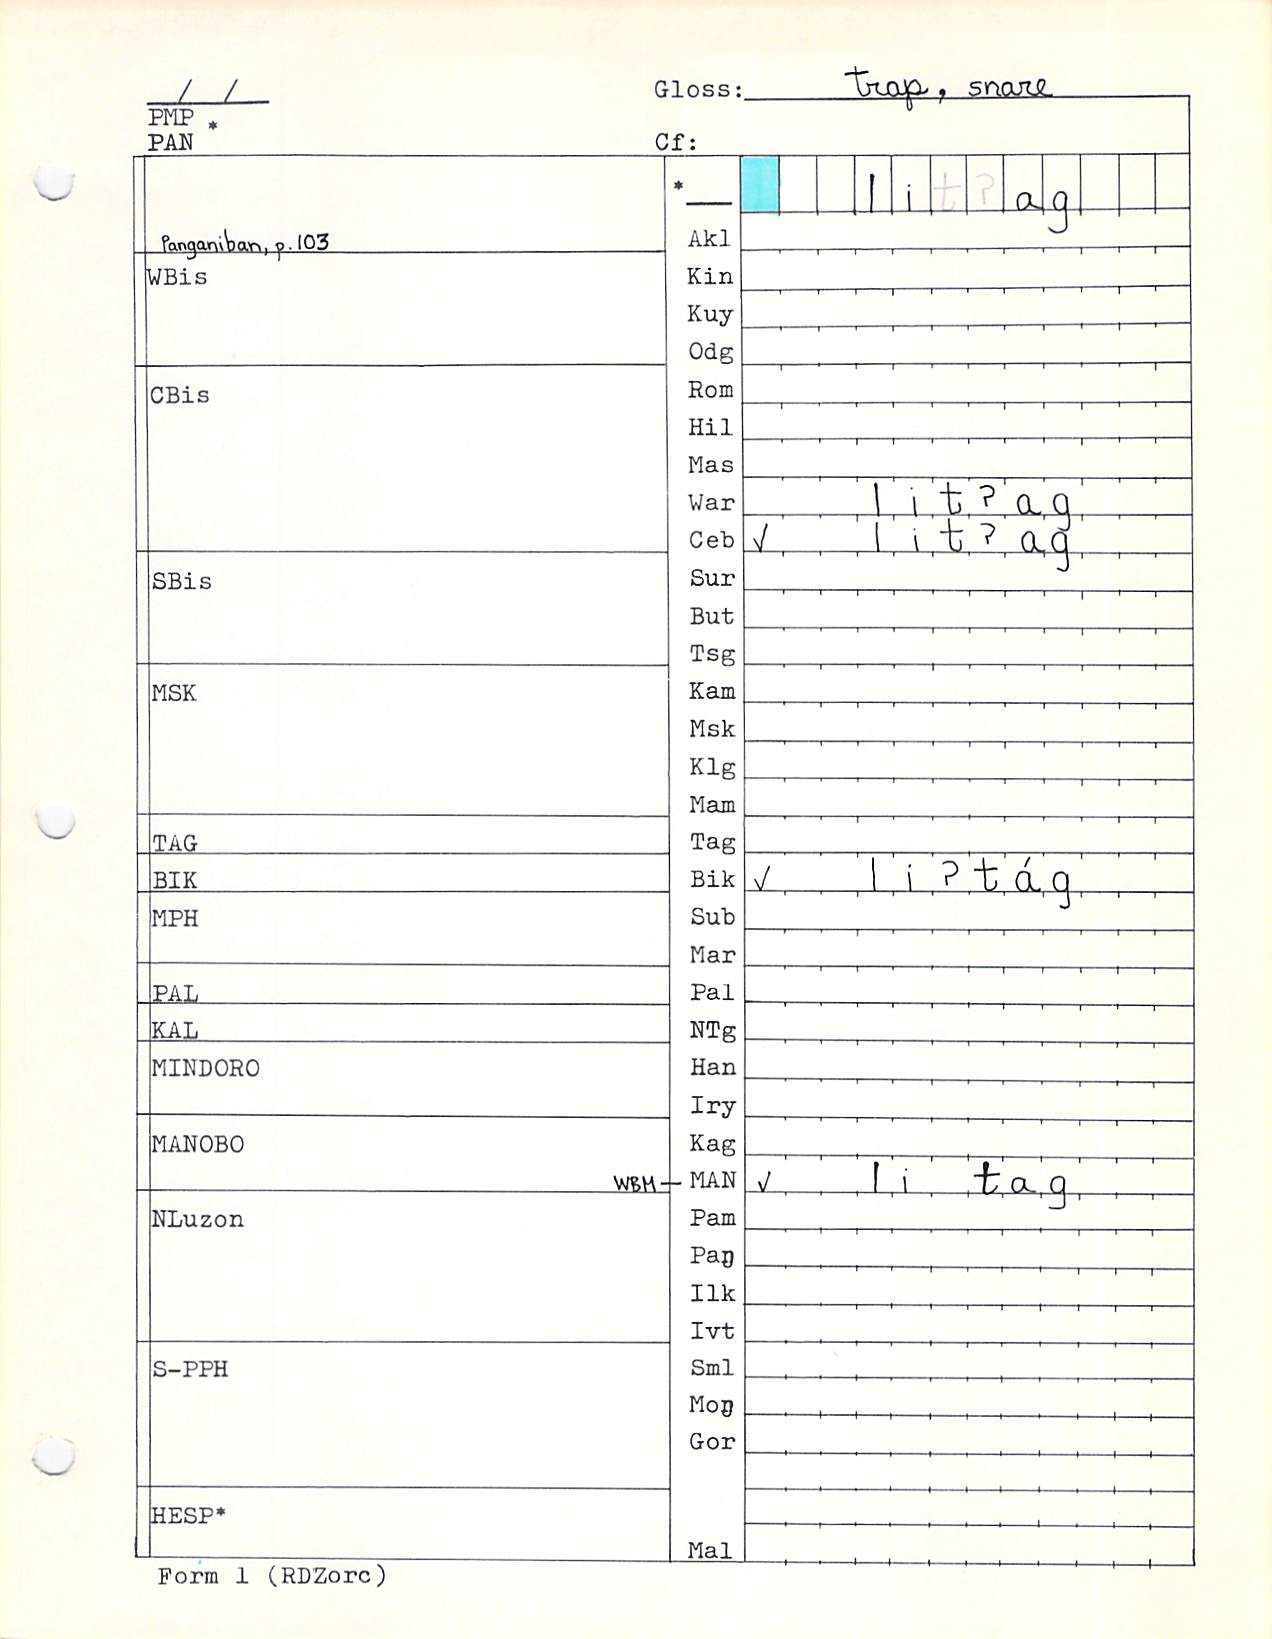 / /
Gloss: trap, snare
PMP *
PAN
Cf:
* l i t ? a g
Panganiban, p.103
Akl
WBis
Kin
Kuy
Odg
CBis
Rom
Hil
Mas
War l i t ? a g
Ceb ✓ l i t ? a g
SBis
Sur
But
Tsg
MSK
Kam
Msk
Klg
Mam
TAG
Tag
BIK
Bik ✓ l i ? t á g
MPH
Sub
Mar
PAL
Pal
KAL
NTg
MINDORO
Han
Iry
MANOBO
Kag
WBM — MAN ✓ l i t a g
NLuzon
Pam
Paŋ
Ilk
Ivt
S-PPH
Sml
Moŋ
Gor
HESP*
Mal
Form 1 (RDZorc)